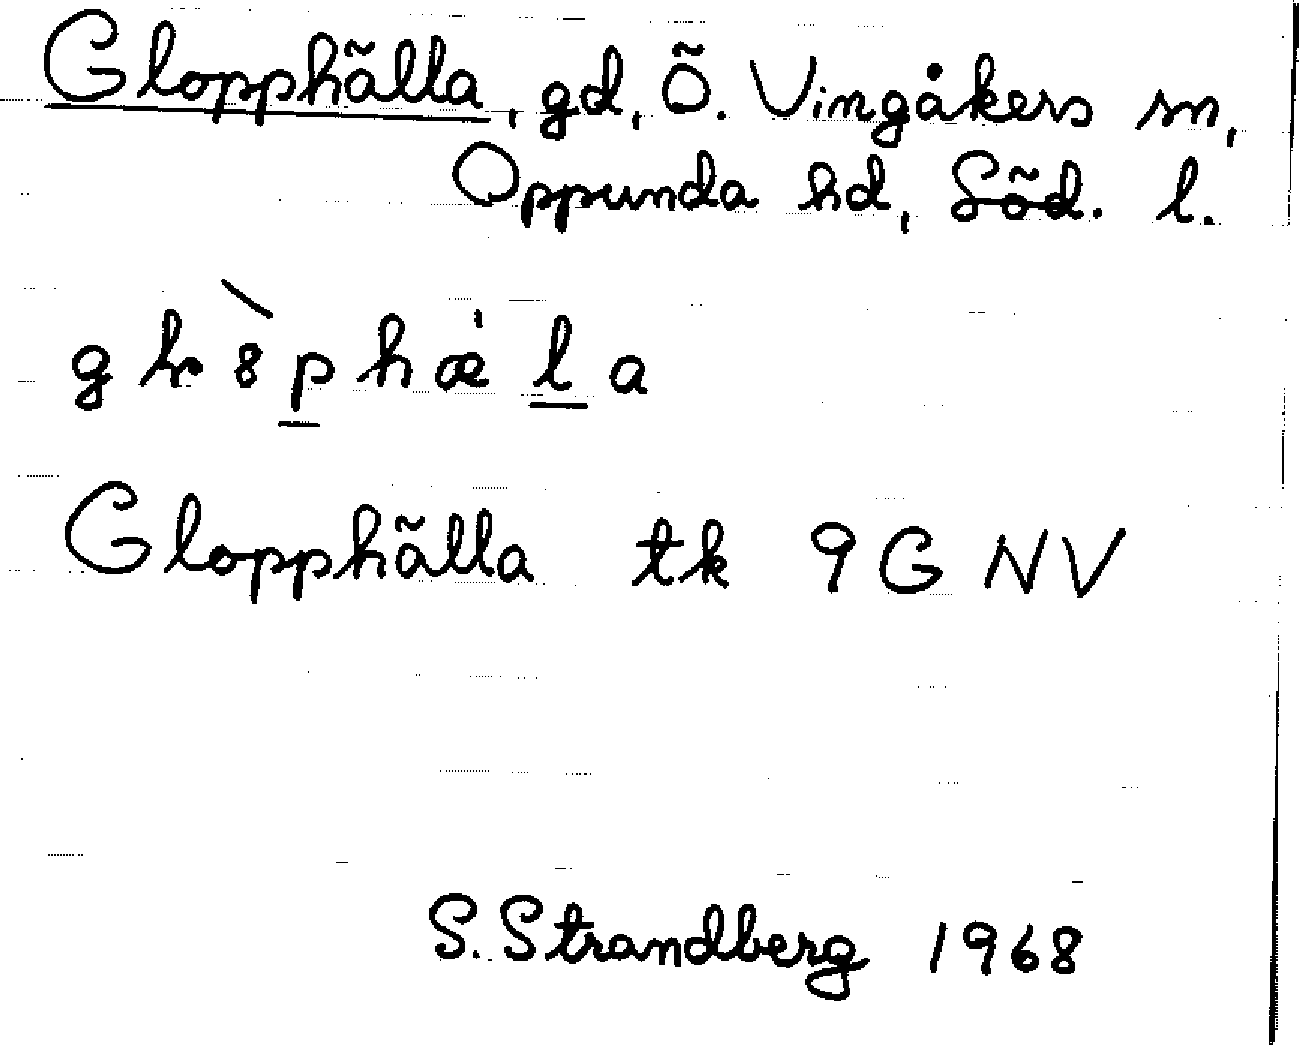 Glopphälla, gd, Ö. Vingåkers sn,
Oppunda hd, Söd. l.
Glopphälla tk 9G NV
S. Strandberg 1968